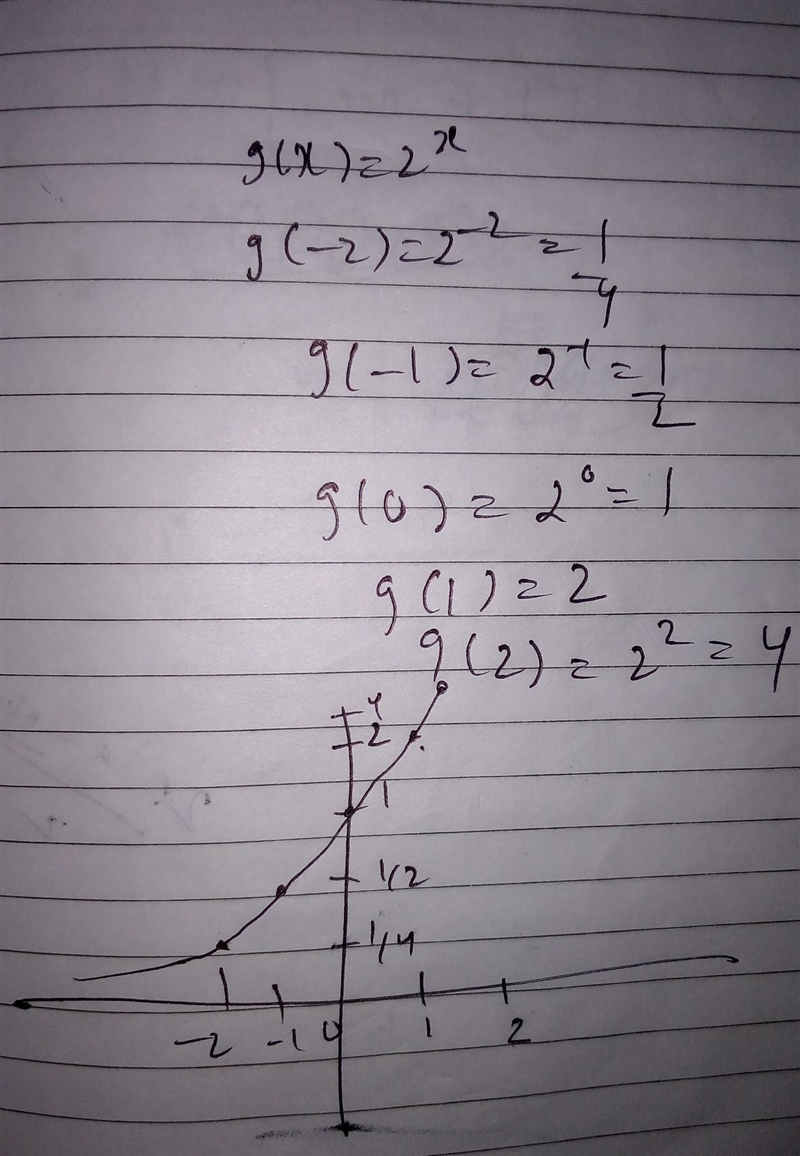 g(x)=2^x
g(-2)=2^-2=1/4
g(-1)=2^-1=1/2
g(0)=2^0=1
g(1)=2
g(2)=2^2=4
4
2
1
1/2
1/4
-2 -1 0 1 2